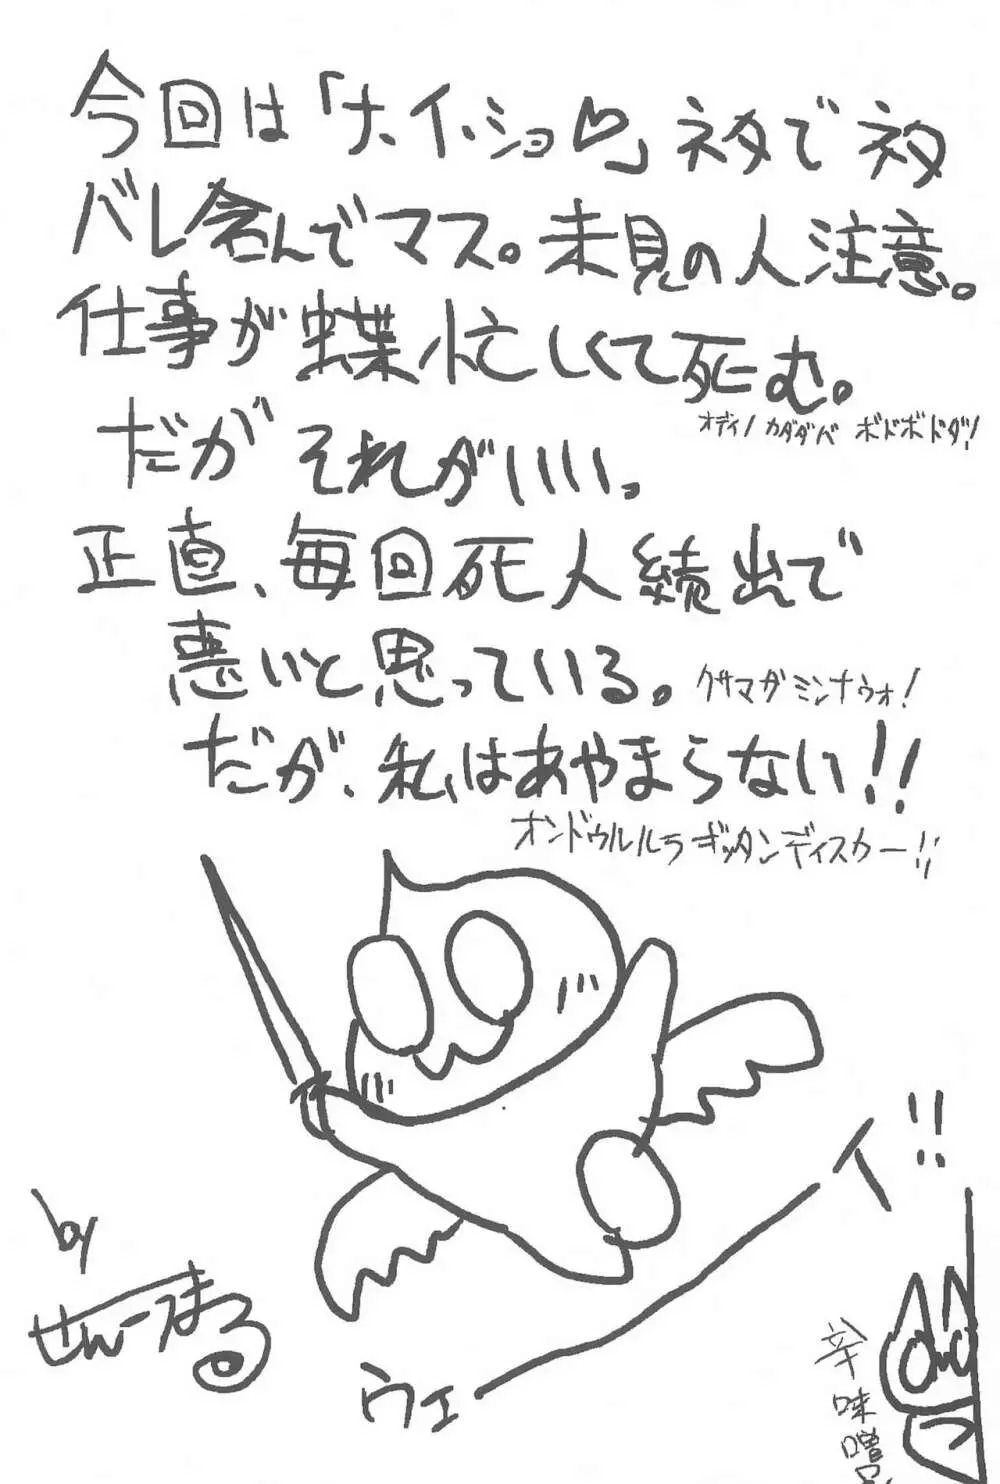 今回は「ナ、イ、ショ♡」ネタでネタ
バレ含んでマス。未見の人注意。
仕事が蝶忙しくて死む。
オディノカダダベボドボドダ!
だがそれがいい。
正直、毎回死人続出で
悪いと思っている。
クサマガミンナウォ!
だが、私はあやまらない!!
オンドゥルルラギッタンディスカー!!
ウェーイ!!
by
せんーまる
辛味噌